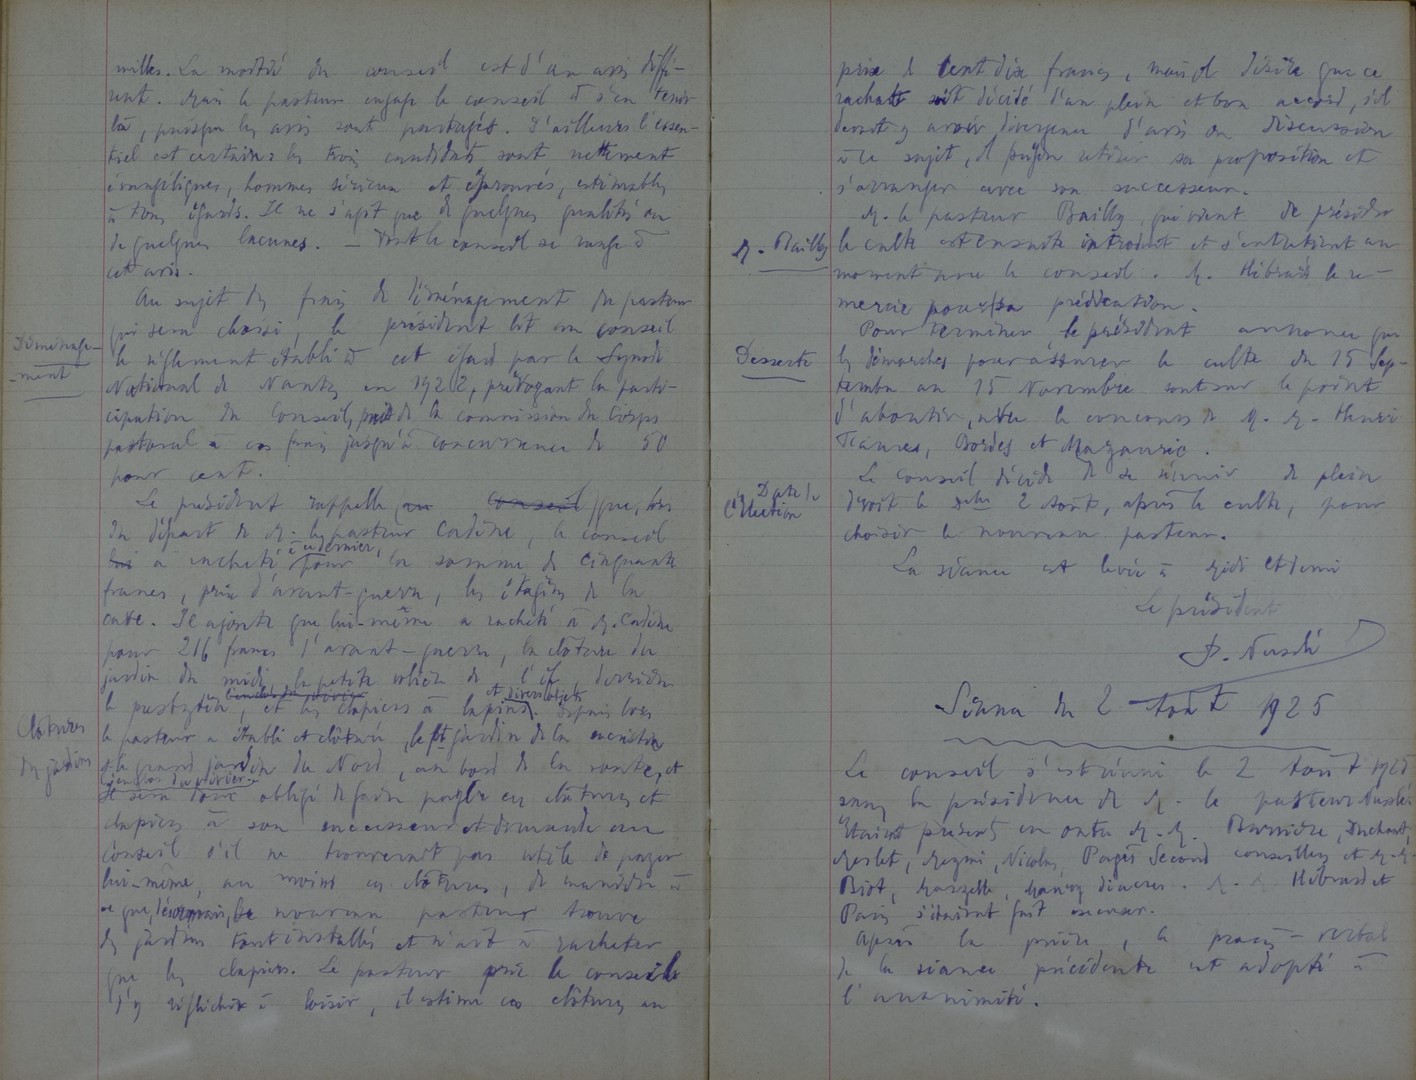 milles. La moitié du conseil est d'un avis diffé-
rent. Mais le pasteur engage le conseil à s'en tenir
là, puisque les avis sont partagés. D'ailleurs l'essen-
tiel est certain : les trois candidats sont nettement
évangéliques, hommes sérieux et éprouvés, estimables
à tous égards. Il ne s'agit que de quelques qualités ou
de quelques lacunes. — Tout le conseil se range à
cet avis.
Au sujet des frais de déménagement du pasteur
qui sera choisi, le président lit au conseil
Déménage-
-ment
le règlement établi à cet égard par le Synode
National de Nantes en 1922, prévoyant la parti-
cipation du Conseil, de la commission du Corps
pastoral à ces frais jusqu'à concurrence de 50
pour cent.
Le président rappelle (au Conseil) que, lors
du départ de M. le pasteur Cadène, le conseil
lui a racheté à ce dernier, pour la somme de cinquante
francs, prix d'avant-guerre, les étagères de la
cave. Il ajoute que lui-même a racheté à M. Cadène
pour 216 francs l'avant-guerre, la clôture du
jardin du midi, la petite volière de derrière
le presbytère, et les clapiers à lapins et divers objets. Depuis lors
Clôtures
du jardin
le pasteur a établi et clôturé, le pt jardin de la sacristie
et le grand jardin du Nord, au bord de la route, et
l'enclos du vivier.
Il sera donc obligé de faire payer ces clôtures et
clapiers à son successeur et demande au
Conseil s'il ne trouverait pas utile de payer
lui-même, au moins ces clôtures, de manière à
ce que, désormais, le nouveau pasteur trouve
des jardins tout installés et n'ait à racheter
que les clapiers. Le pasteur prie le conseil
d'y réfléchir à loisir, il estime ces clôtures au
prix de cent dix francs, mais il désire que ce
rachat soit décidé d'un plein et bon accord, s'il
devait y avoir divergence d'avis ou discussion
à ce sujet, il préfère retirer sa proposition et
s'arranger avec son successeur.
M. le pasteur Bailly, qui vient de présider
M. Bailly
le culte est ensuite introduit et s'entretient un
moment avec le conseil. M. Hébrard le re-
mercie pour sa prédication.
Pour terminer, le président annonce que
Desserte
les démarches pour assurer le culte du 15 Sep-
tembre au 15 Novembre sont sur le point
d'aboutir, avec le concours de M. M. Henri
Bordes et Mazauric.
Le Conseil décide de se réunir de plein
Date de
l'élection
droit le 2 Août, après le culte, pour
choisir le nouveau pasteur.
La séance est levée à Midi et demi
Le président
Séance du 2 Août 1925
Le conseil s'est réuni le 2 Août 1925
sous la présidence de M. le pasteur
Etaient présents en outre M. M.
Merlet, Nicolas, Pagès Second conseillers et M. M.
Biot, diacres. M. M. Hébrard et
Paris s'étaient fait excuser.
Après la prière, le procès-verbal
de la séance précédente est adopté à
l'unanimité.